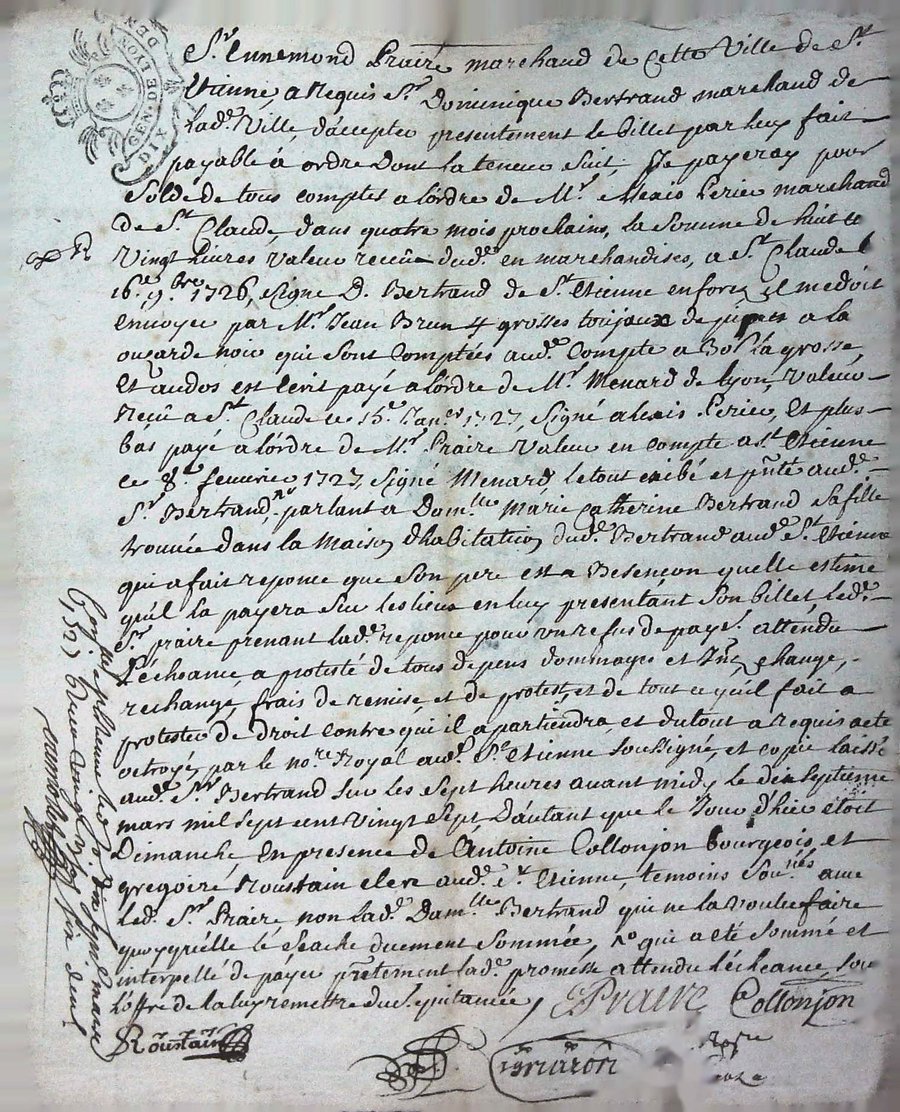 GEN. DE LYON
DIX DEN
Sr. Ennemond Praire marchand de Cette Ville de St.
Etienne, a Requis Sr. Dominique Bertrand marchand de
Lade. Ville d'accepter presentement le billet par luy fait
payable à ordre Dont la teneur Suit, Je payeray pour
Solde de tous comptes a l'ordre de Mr. Alexis Perier marchand
de St. Claude, dans quatre mois prochains, la Somme de huit
Vingt livres valeur receüe dud. en marchandises, a St. Claude
16e. 9bre. 1726, Signé D. Bertrand de St. Etienne en forez, il me doit
envoyer par Mr. Jean Brun 4 grosses de a la
noir qui sont Comptées aud. Compte a la grosse,
Et audos est Ecrit payé a l'ordre de Mr. Menard de Lyon, Valeur
Reçû a St. Claude ce 15e. Janr. 1727, Signé alexis Perier, Et plus
bas payé a l'ordre de Mr. Praire Valeur en compte a St. Etienne
ce 8e. feuvrier 1727, Signé Menard, le tout exibé et pnté aud.
Sr. Bertrand, parlant a Damlle. Marie Catherine Bertrand Sa fille
trouuée dans la Maison d'habitation dud. Bertrand aud. St. Etienne
qui a fait reponce que Son pere est a Besençon quelle estime
qu'il la payera Sur les lieux en luy presentant Son billet, led.
Sr. praire prenant lade. reponce pour un refus de payt. attendu
l'écheance, a protesté de tous depens dommages et Int. change,
rechange, frais de remise, et de protest, et de tout ce qu'il fait a
protester de droit contre qui il apartiendra, et du tout a requis acte
octroyé, par le nore. Royal aud. St. Etienne Soussigné, et copie laissé
aud. Sr. Bertrand Sur les Sept heures auant midy le dix Septieme
mars mil Sept cent Vingt Sept, D'autant que le Jour d'hier étoit
Dimanche, En presence de Antoine Collonjon Bourgeois, et
gregoire Roustain clerc aud. St. Etienne, temoins Sounés auec
led. Sr. Praire non lade. Damlle. Bertrand qui ne la voulu faire
quoyqu'elle le Scache duement Sommée, qui a eté Sommé et
interpellé de payer pntement lade. promesse attendu l'écheance, Sou
l'offre de la luy remettre quitancée,
EPraire Collonjon
Roustain